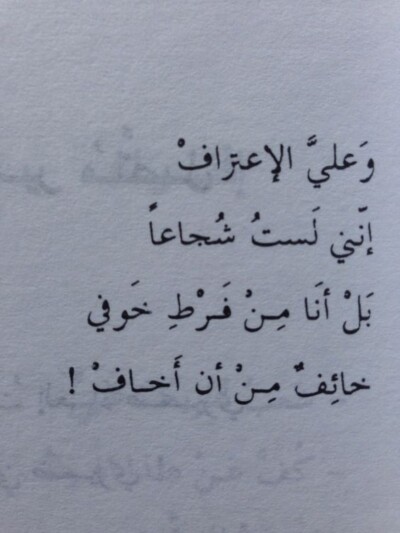 وَعليَّ الإعترافْ
إنّني لَستُ شُجاعاً
بَلْ أنَا مِنْ فَرْطِ خَوفي
خائِفٌ مِنْ أن أَخافْ !